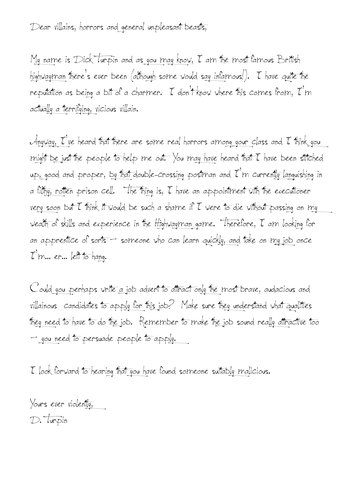 Dear villains, horrors and general unpleasant beasts,
My name is Dick Turpin and as you may know, I am the most famous British
highwayman there's ever been (although some would say infamous!). I have quite the
reputation as being a bit of a charmer. I don't know where this comes from, I'm
actually a terrifying, vicious villain.
Anyway, I've heard that there are some real horrors among your class and I think you
might be just the people to help me out. You may have heard that I have been stitched
up, good and proper, by that double-crossing postman and I'm currently languishing in
a filthy, rotten prison cell. The thing is, I have an appointment with the executioner
very soon but I think it would be such a shame if I were to die without passing on my
wealth of skills and experience in the Highwayman game. Therefore, I am looking for
an apprentice of sorts – someone who can learn quickly, and take on my job once
I'm... er... left to hang.
Could you perhaps write a job advert to attract only the most brave, audacious and
villainous candidates to apply for this job? Make sure they understand what qualities
they need to have to do the job. Remember to make the job sound really attractive too
– you need to persuade people to apply.
I look forward to hearing that you have found someone suitably malicious.
Yours ever violently,
D. Turpin